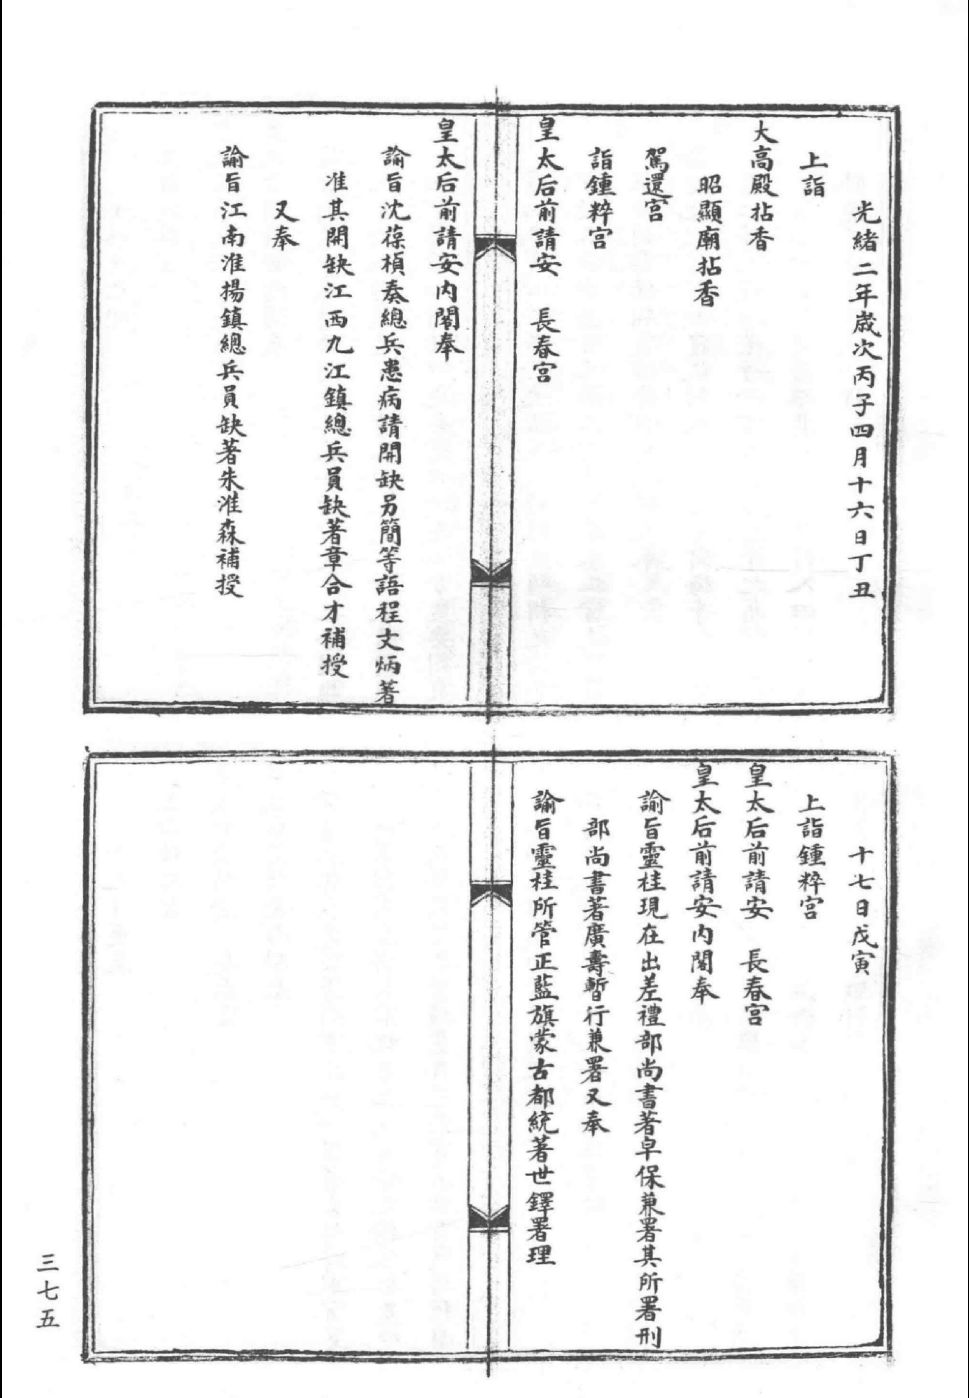 光緒二年歲次丙子四月十六日丁丑
上詣
大高殿拈香
昭顯廟拈香
駕還宮
詣鍾粹宮
皇太后前請安　長春宮
皇太后前請安內閣奉
諭旨沈葆楨奏總兵患病請開缺另簡等語程文炳著
准其開缺江西九江鎮總兵員缺著章合才補授
又奉
諭旨江南淮揚鎮總兵員缺著朱淮森補授
十七日戊寅
上詣鍾粹宮
皇太后前請安　長春宮
皇太后前請安內閣奉
諭旨靈桂現在出差禮部尚書著皁保兼署其所署刑
部尚書著廣壽暫行兼署又奉
諭旨靈桂所管正藍旗蒙古都統著世鐸署理
三七五